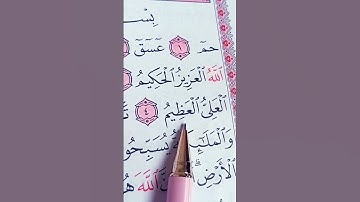 بِسْ
حمٓ ١ عٓسٓقٓ
ٱللَّهُ ٱلْعَزِيزُ ٱلْحَكِيمُ
ٱلْعَلِىُّ ٱلْعَظِيمُ ٤ تَ
وَٱلْمَلَـٰٓئِ يُسَبِّحُو
ٱلْأَرْضِ ۗ ٱللَّهَ هُ